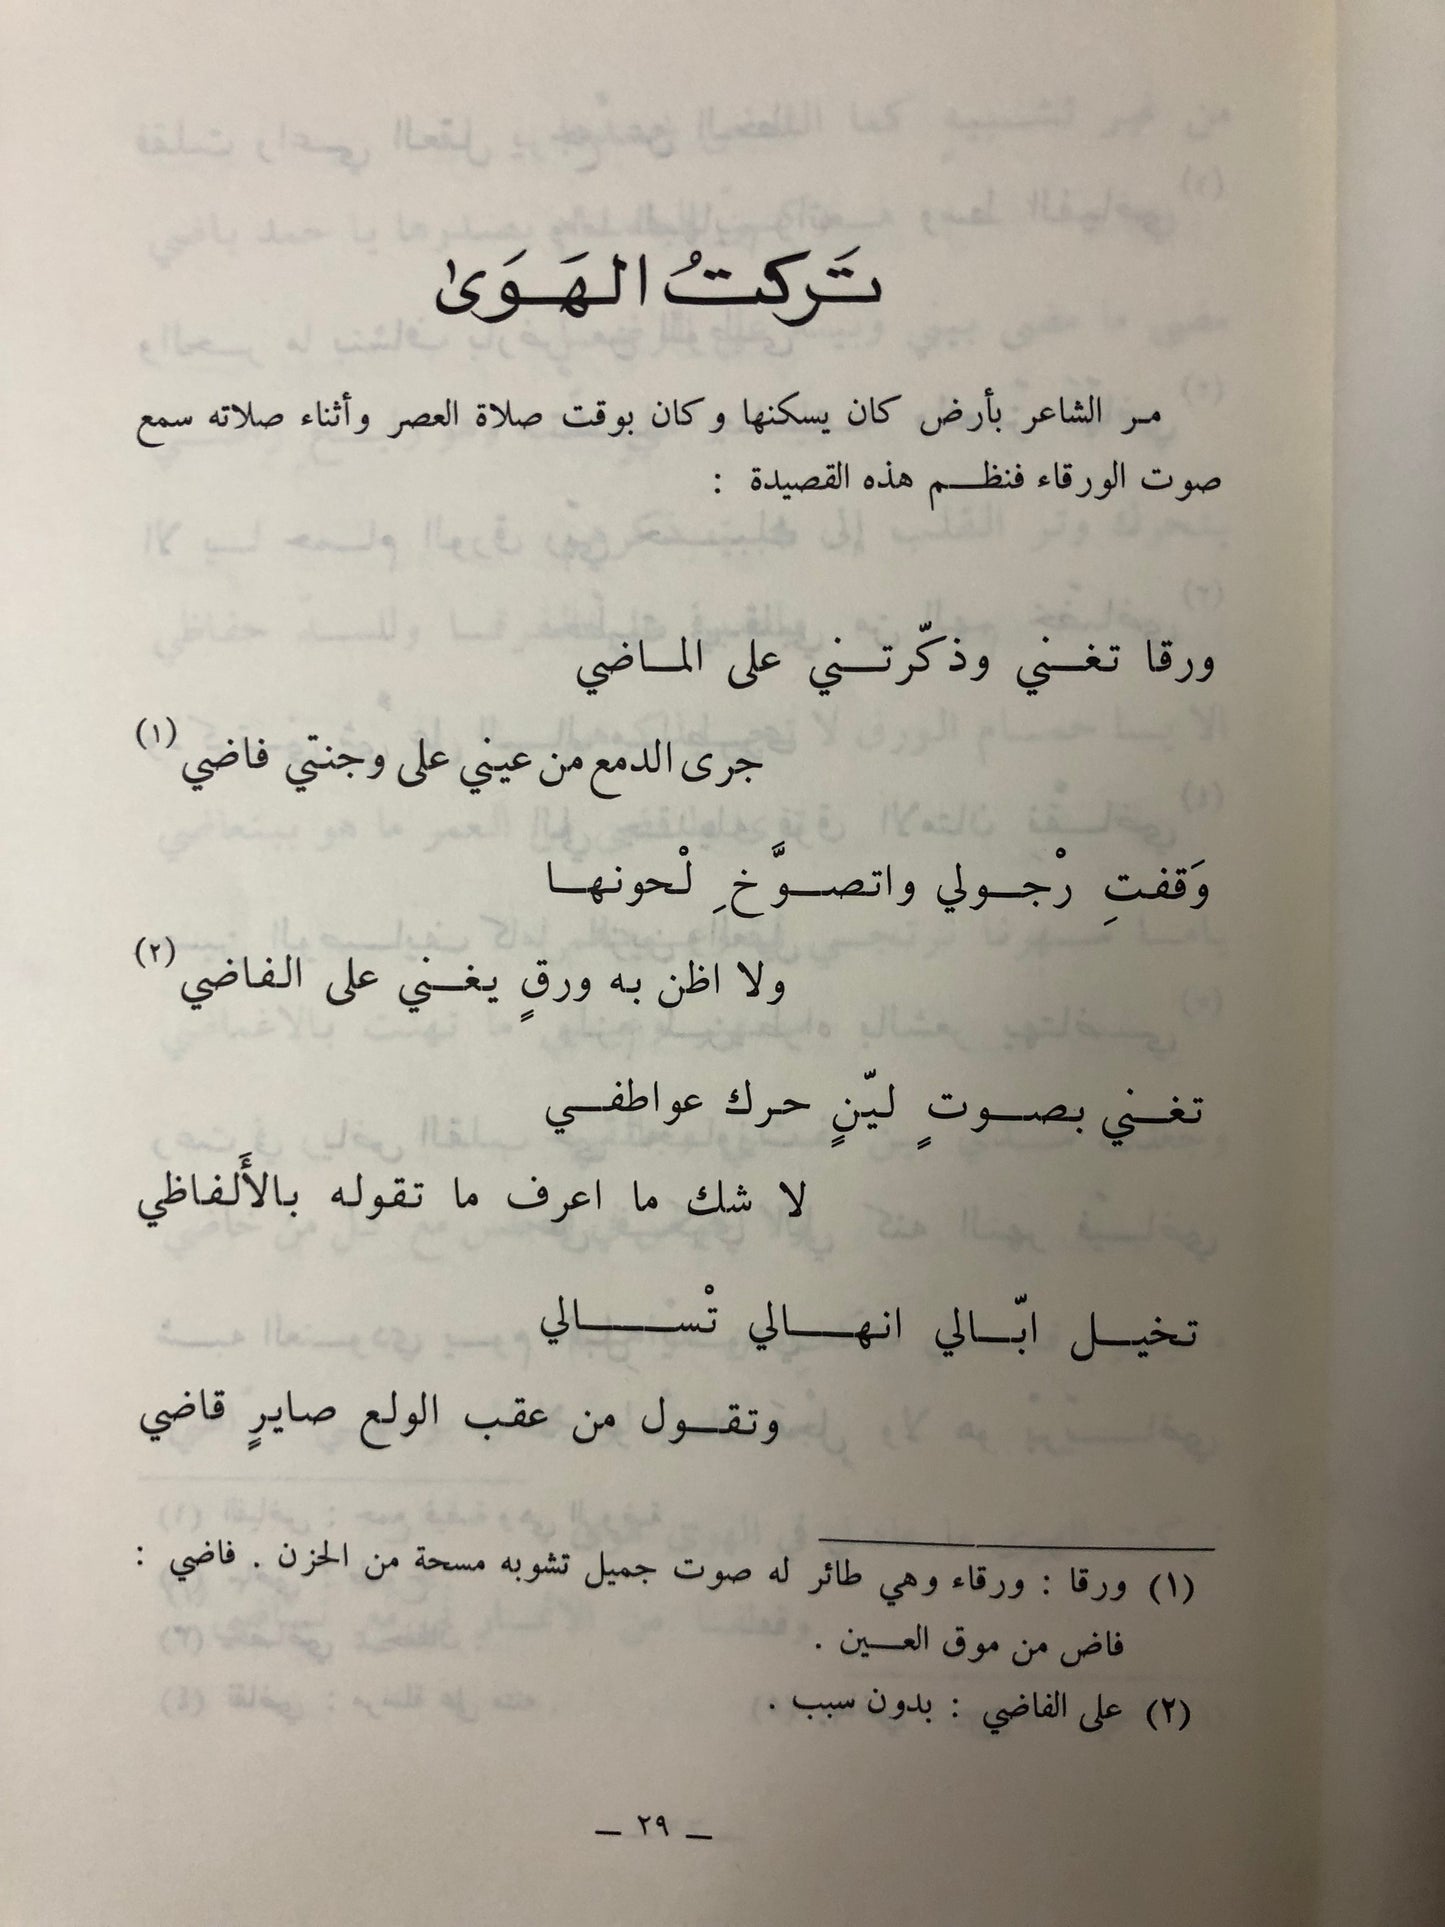 تَركتُ الهَوَىٰ
مر الشاعر بأرض كان يسكنها وكان بوقت صلاة العصر وأثناء صلاته سمع
صوت الورقاء فنظم هذه القصيدة :
ورقا تغني وذكّرتني على الماضي
جرى الدمع من عيني على وجنتي فاضي (١)
وَقفتِ رْجولي واتصوَّخِ لْحونها
ولا اظن به ورقٍ يغني على الفاضي (٢)
تغني بصوتٍ ليّنٍ حرك عواطفي
لا شك ما اعرف ما تقوله بالأَلفاظي
تخيل ابّالي انهالي تْسالي
وتقول من عقب الولع صايرٍ قاضي
(١) ورقا : ورقاء وهي طائر له صوت جميل تشوبه مسحة من الحزن . فاضي :
فاض من موق العين .
(٢) على الفاضي : بدون سبب .
ــ ٢٩ ــ